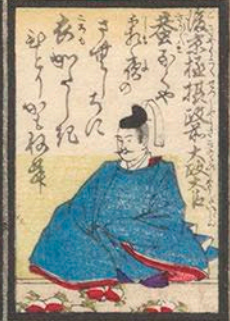 後京極摂政前太政大臣
蛬なくや
霜夜の
さむしろに
衣かたしき
ひとりかもね